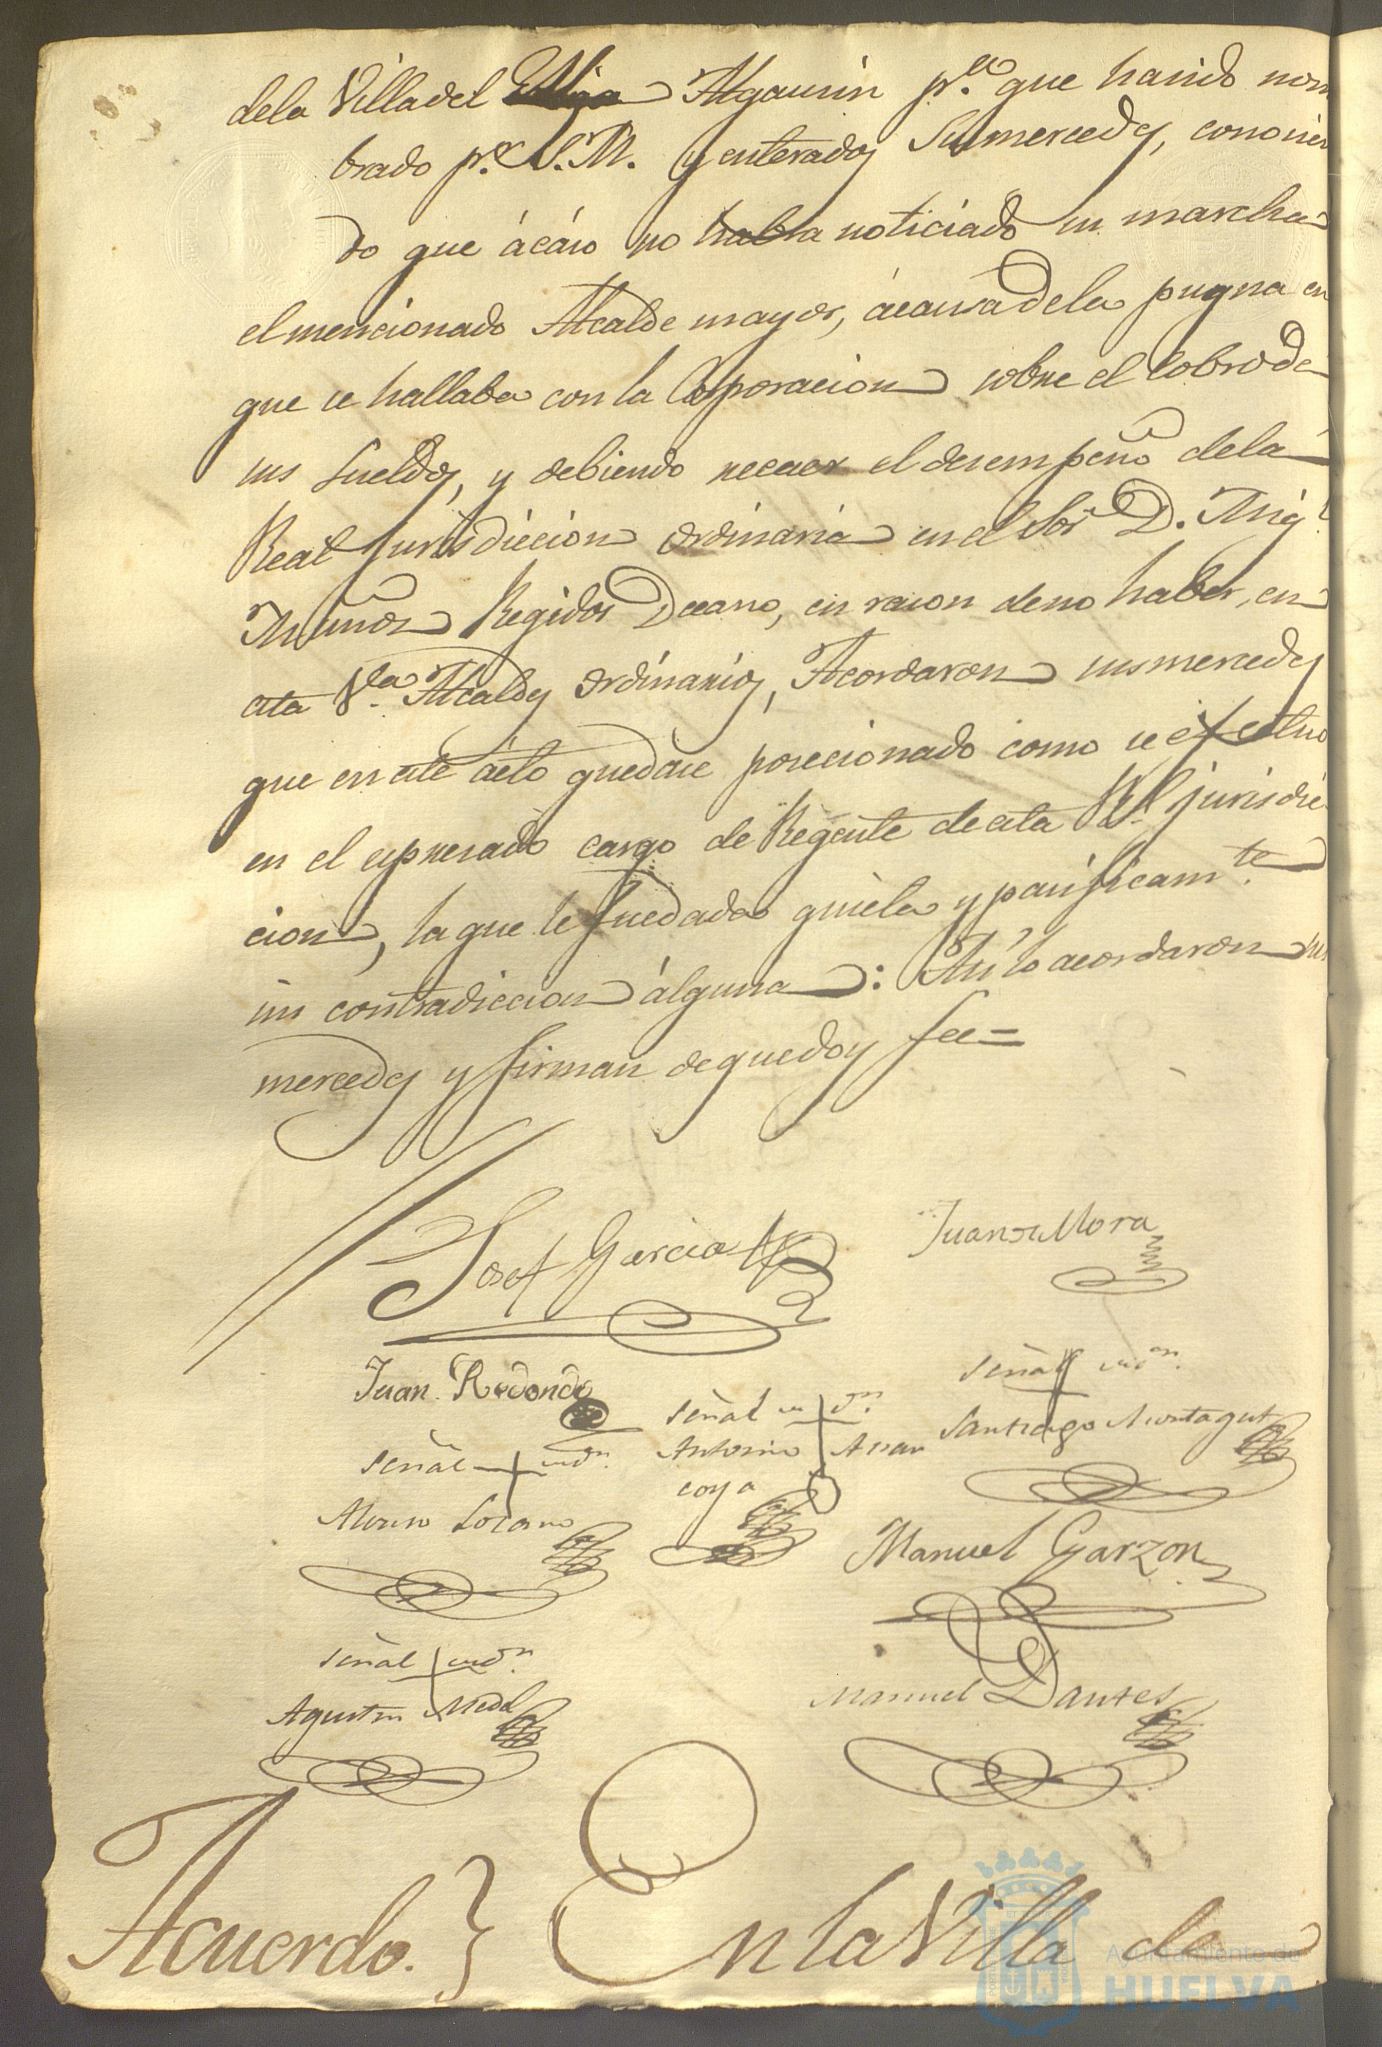 dela Villa del Algausin pr. que ha sido nom
brado pr. S.M. y enterados Sus mercedes, conocien
do que ácáso no habra noticiado su marcha
el mencionado Alcalde mayor, ácausa dela pugna en
que se hallaba con la Corporacion sobre el cobro de
sus sueldos, y debiendo recaer el desempeño dela
Real jurisdiccion ordinaria en el Sor. D. Mig.l
Muñoz Regidor Decano, en rason deno haber, en
esta V.la Alcaldes ordinarios, Acordaron sus mercedes
que en este ácto quedase posecionado como se efectuo
en el espresado cargo de Regente de esta Rl. jurisdic
cion, la que le fue dada quieta y pacificamte.
sin contradiccion álguna: Asi lo acordaron sus
mercedes y firman de que doy fee=
Josef Garcia
Juan de Mora
Juan Redondo
Señal + de Dn.
Antonio Asan
coya
Señal + de Dn.
Santiago Montagut
Señal + de Dn.
Alonso Lozano
Manuel Garzon
Señal + de Dn.
Agustin
Manuel Dantes
Acuerdo. } En la Villa de
Ayuntamiento de
HUELVA